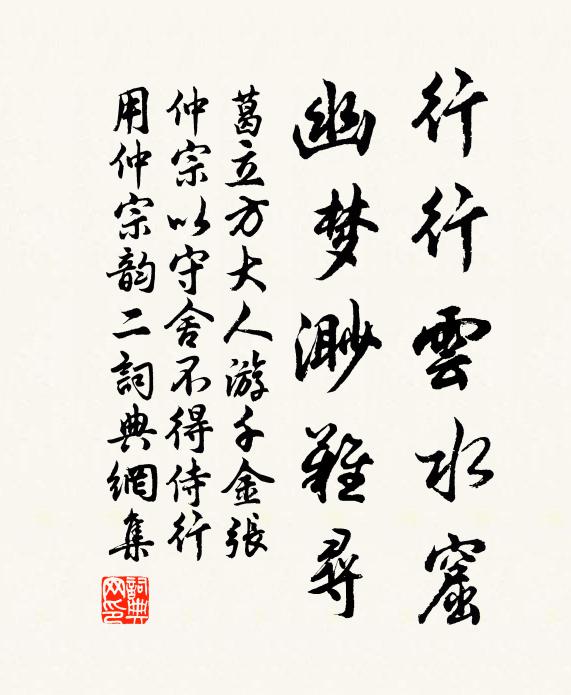 行行雲水窟
幽梦渺難尋
葛立方大人游千金張
仲宗以守舍不得侍行
用仲宗韵二詞典網集
詞典网印